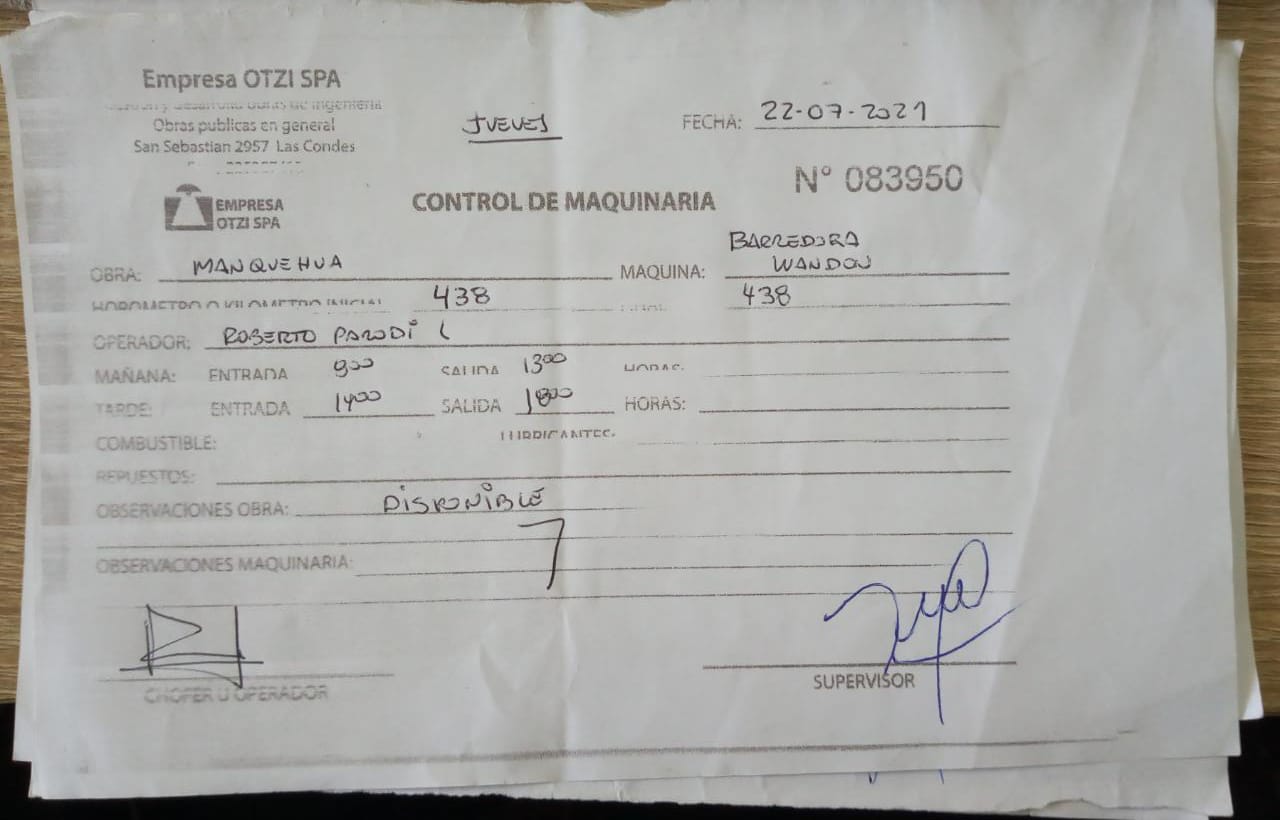 Empresa OTZI SPA
Obras publicas en general
San Sebastian 2957 Las Condes
JUEVES
FECHA: 22-07-2021
N° 083950
EMPRESA
OTZI SPA
CONTROL DE MAQUINARIA
BARREDORA
OBRA: MANQUEHUA MAQUINA: WANDON
HOROMETRO O KILOMETRO INICIAL 438 438
OPERADOR: ROBERTO PARODI L
MAÑANA: ENTRADA 900 SALIDA 1300 HORAS:
TARDE: ENTRADA 1400 SALIDA 1800 HORAS:
COMBUSTIBLE: LUBRICANTES:
REPUESTOS:
OBSERVACIONES OBRA: DISPONIBLE
OBSERVACIONES MAQUINARIA:
CHOFER U OPERADOR SUPERVISOR